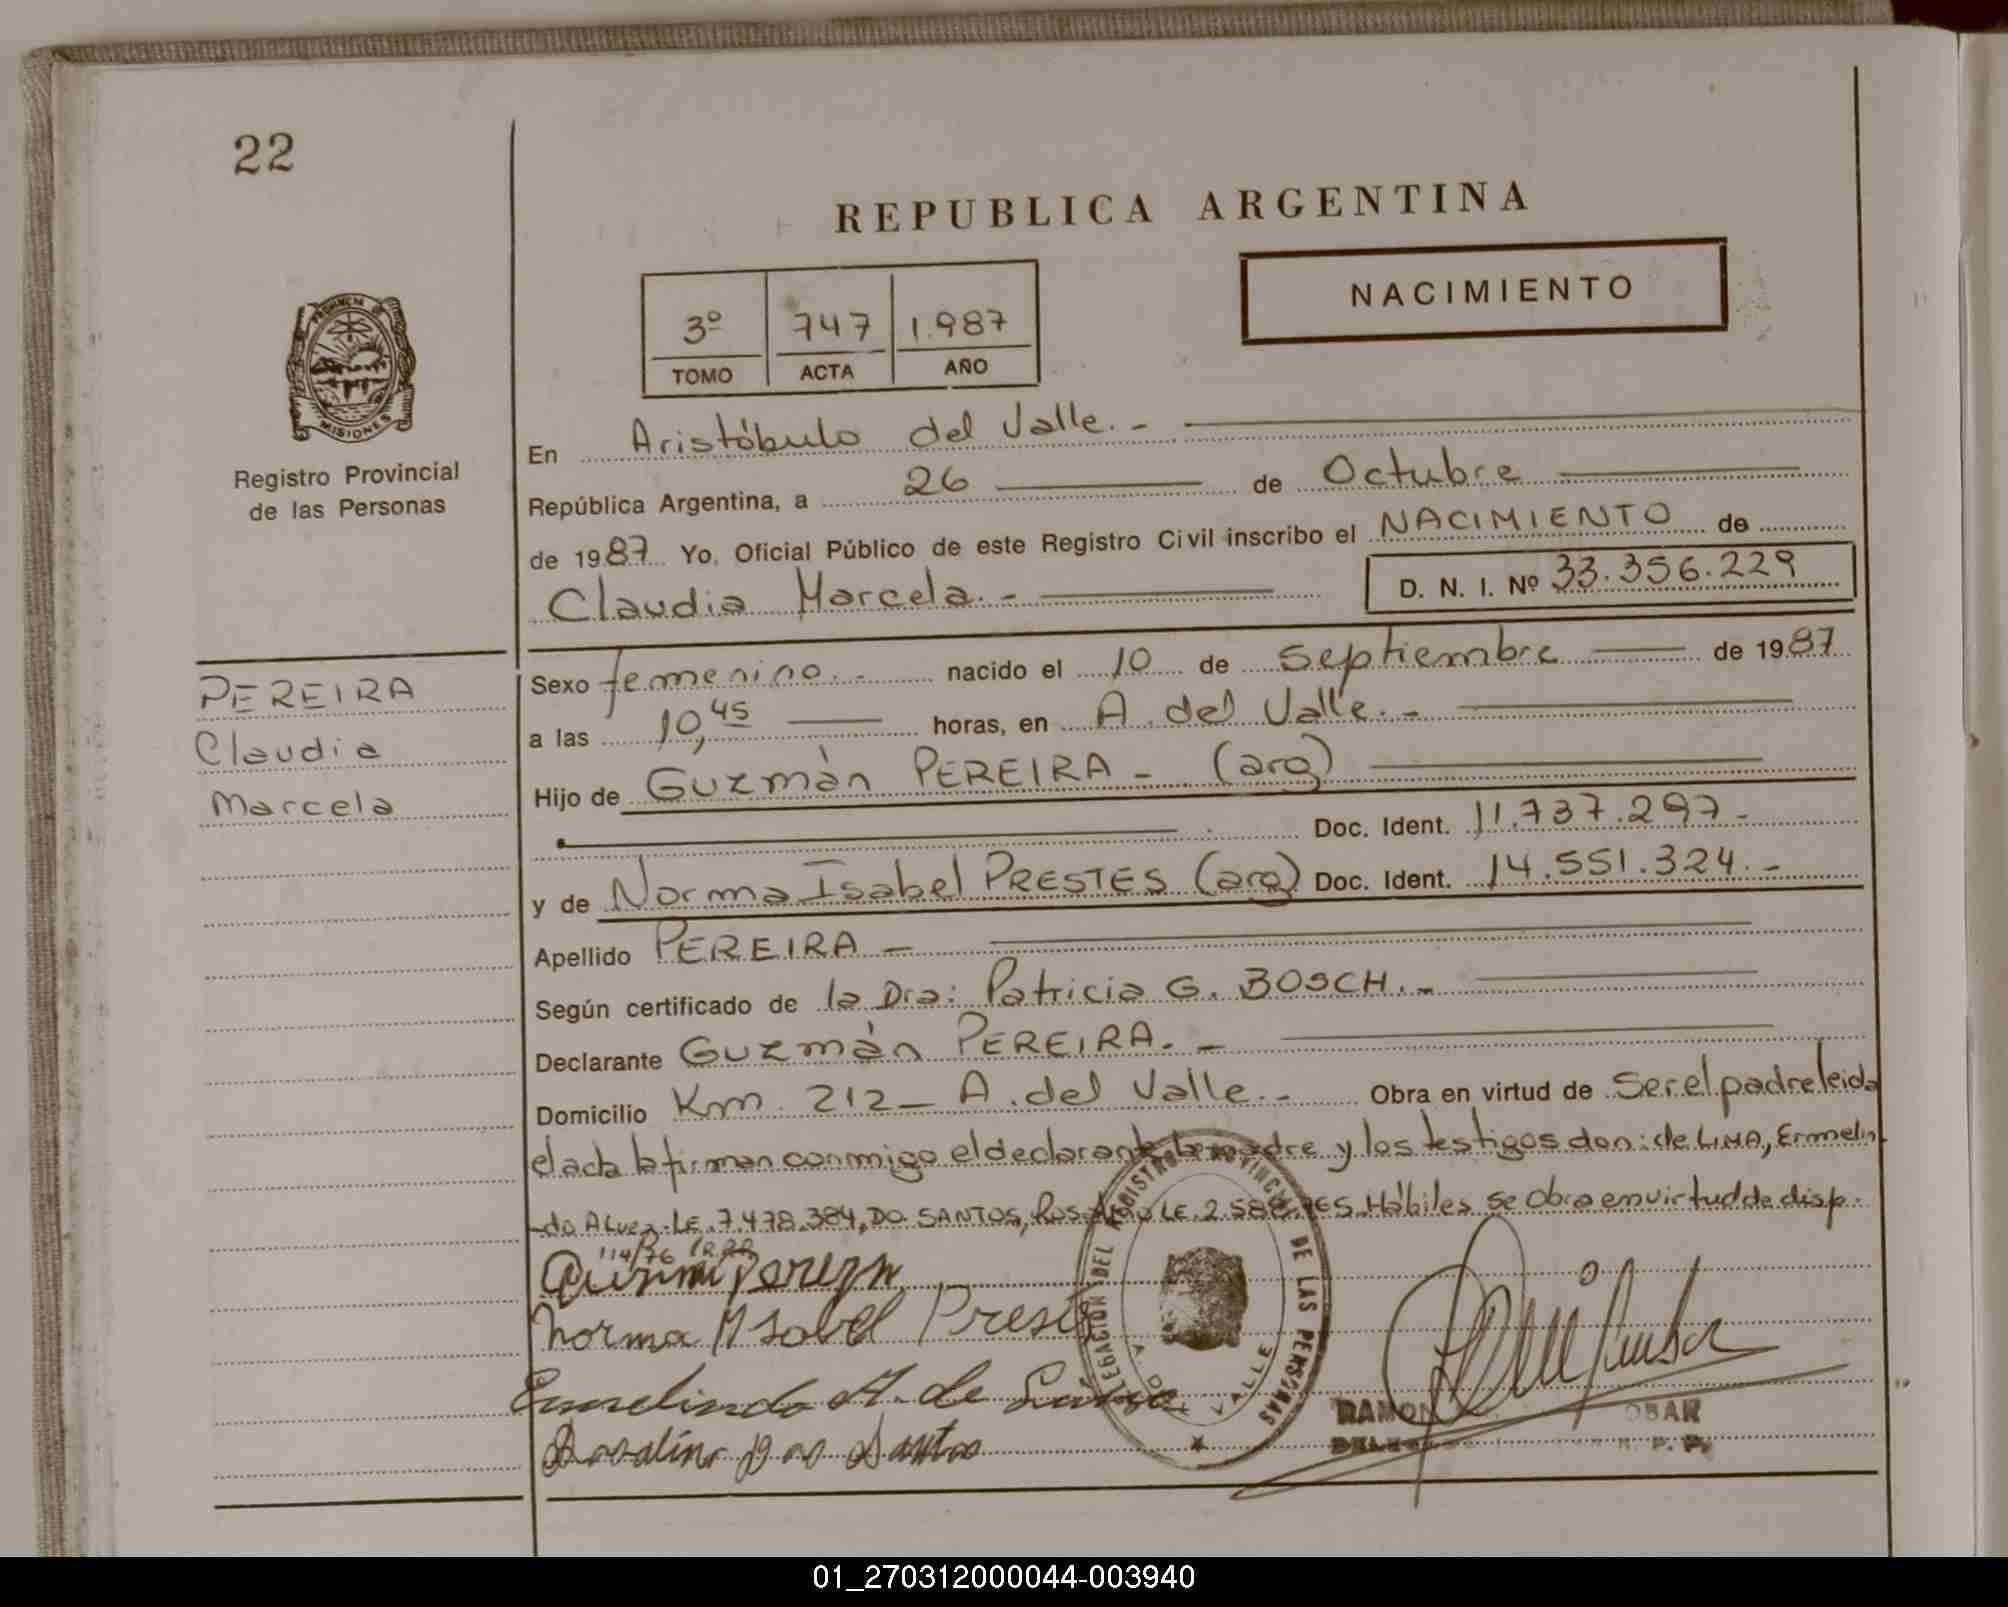 22
REPUBLICA ARGENTINA
NACIMIENTO
3º 747 1.987
TOMO ACTA AÑO
PROVINCIA DE
MISIONES
Registro Provincial
de las Personas
En Aristóbulo del Valle.-
República Argentina, a 26 de Octubre
de 1987 Yo, Oficial Público de este Registro Civil inscribo el NACIMIENTO de
Claudia Marcela.- D. N. I. Nº 33.356.229
PEREIRA
Claudia
Marcela
Sexo femenino.- nacido el 10 de septiembre de 1987
a las 10,45 horas, en A. del Valle.-
Hijo de Guzmán PEREIRA - (arg)
Doc. Ident. 11.737.297-
y de Norma Isabel PRESTES (arg) Doc. Ident. 14.551.324.-
Apellido PEREIRA -
Según certificado de la Dra: Patricia G. BOSCH.-
Declarante Guzmán PEREIRA.-
Domicilio Km. 212- A. del Valle.- Obra en virtud de Ser el padre leida
el acta la firman conmigo el declarante la madre y los testigos don: de LIMA, Ermelin
do Alvez. LE. 7.478.384, DO SANTOS, LE. 2.58 Hábiles se Obra en virtud de disp.
114/76
Norma Isabel Preste
Ermelindo A. de Lima
Rosalino Dos Santos
DELEGACION DEL REGISTRO PROVINCIAL DE LAS PERSONAS
A. DEL VALLE
RAMON OBAR
R. P. P.
01_270312000044-003940